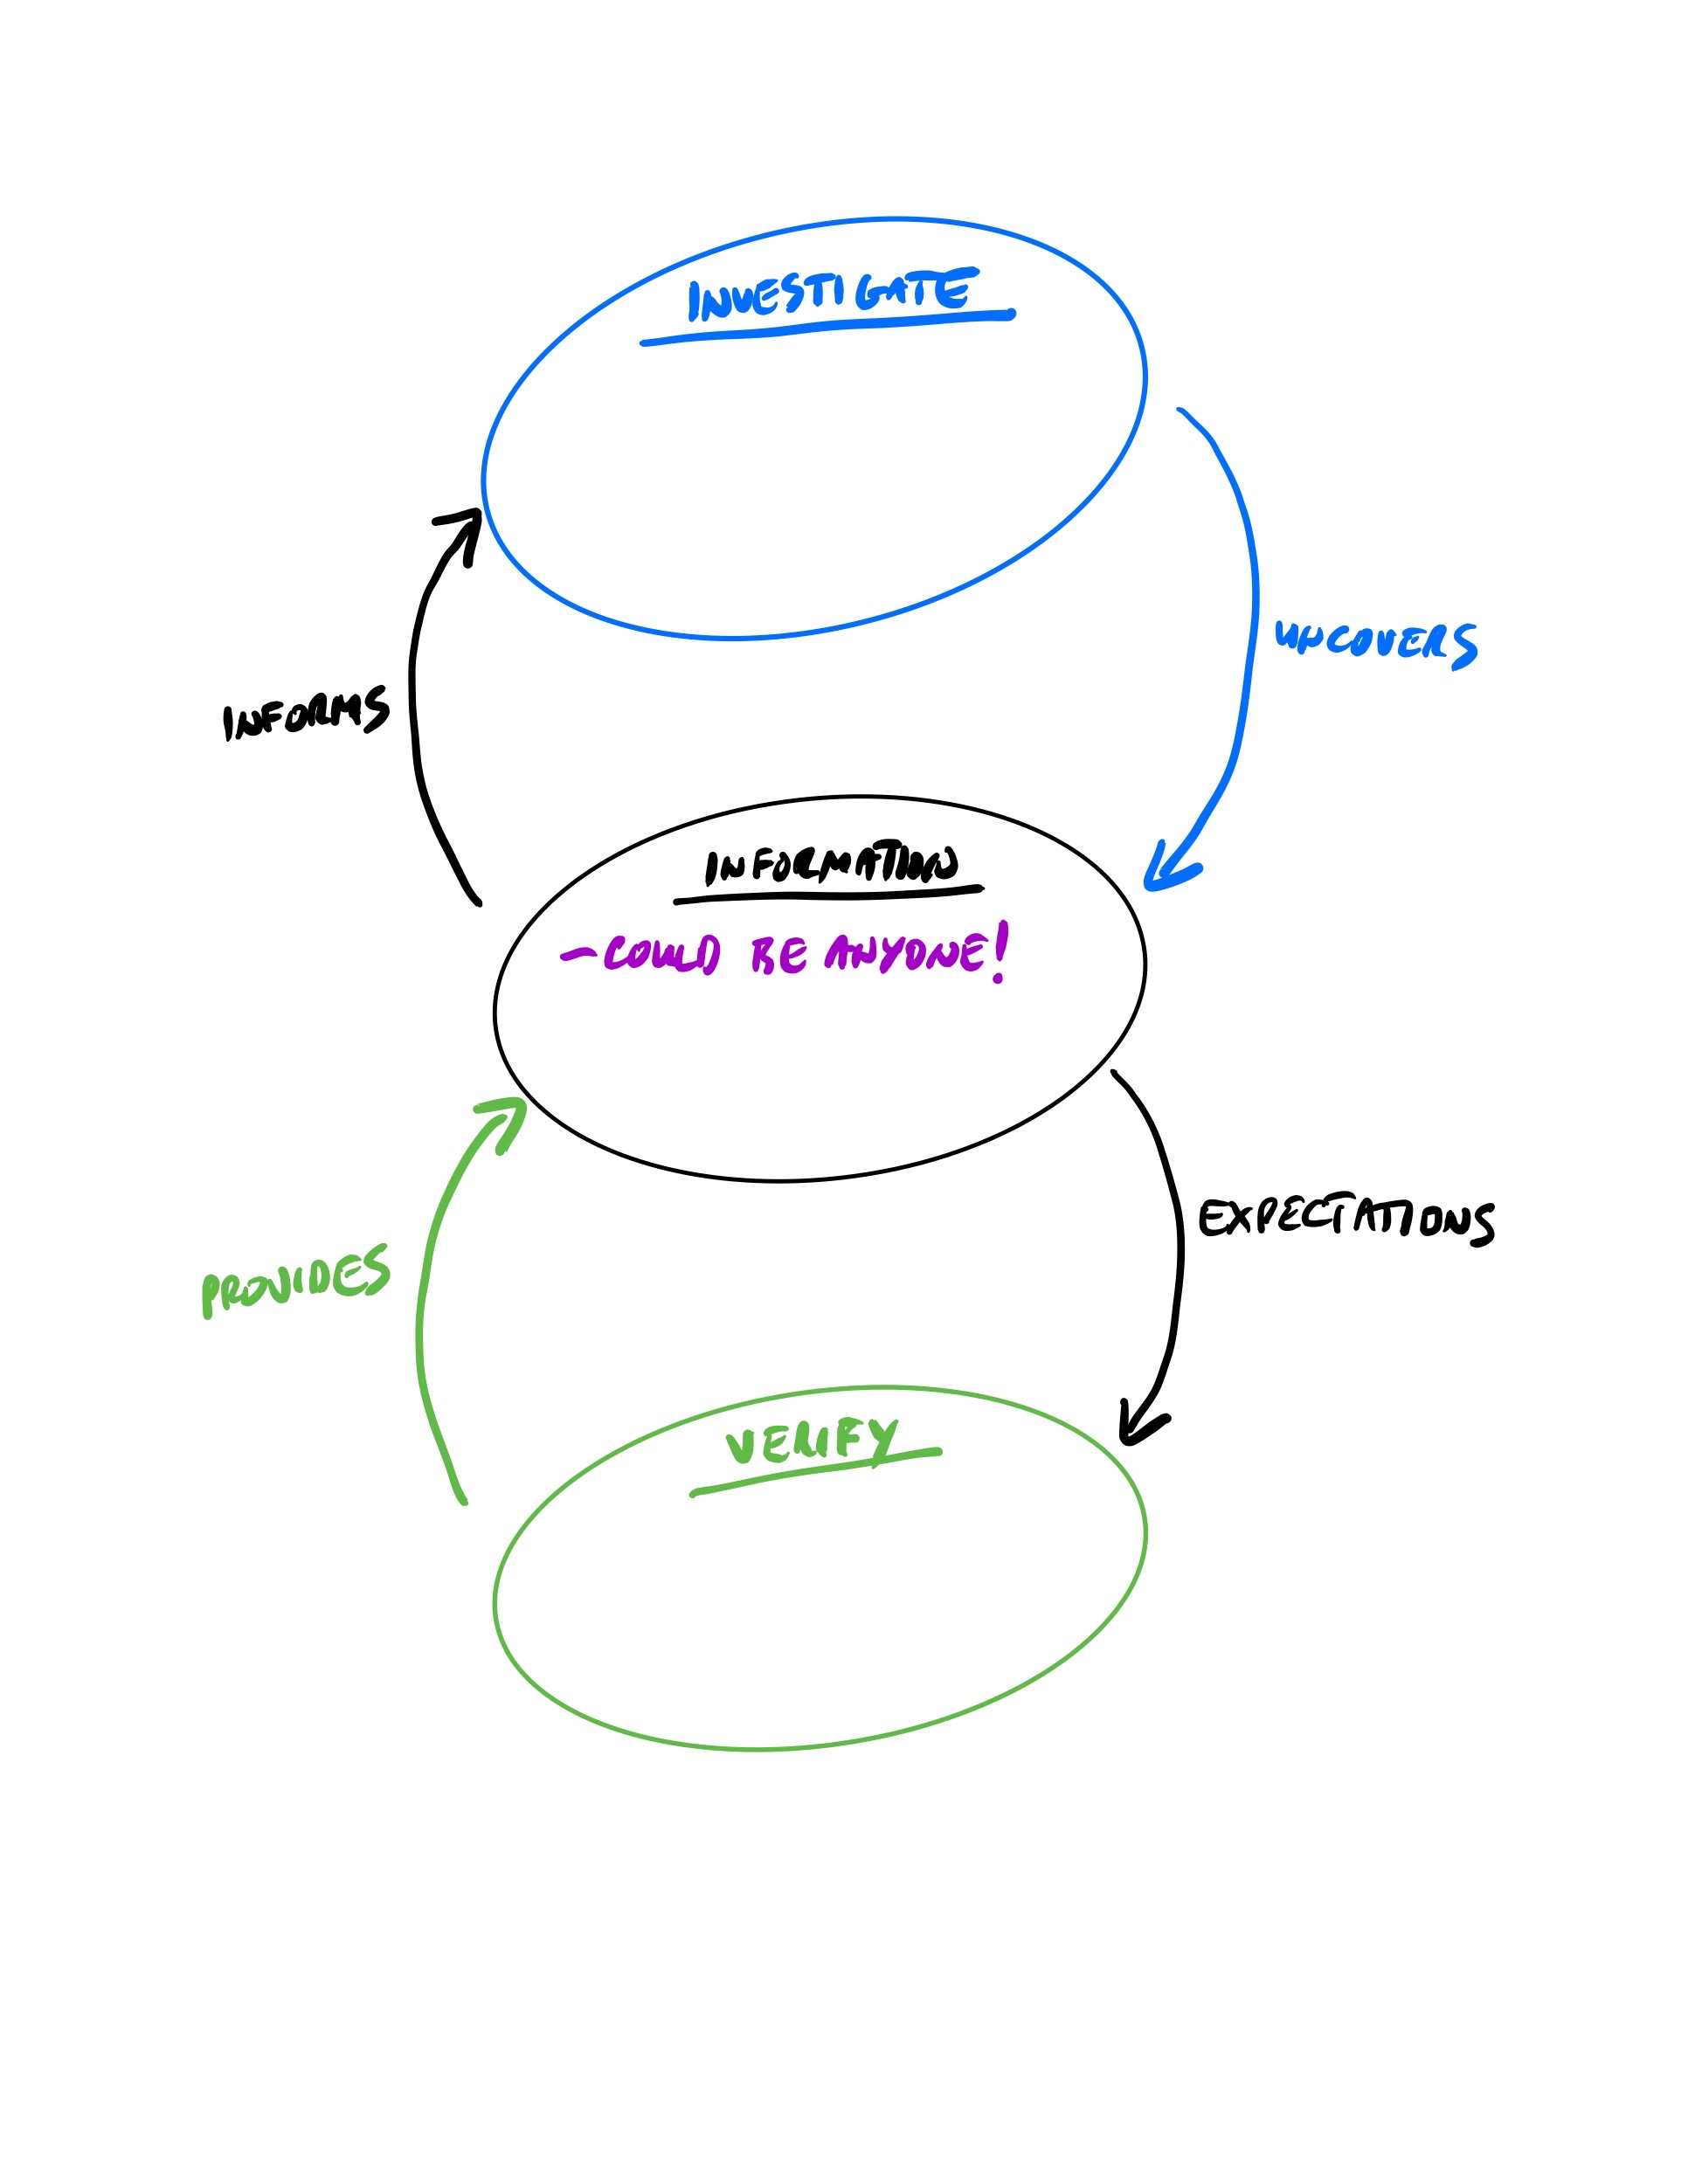 INVESTIGATE
UNCOVERS
INFORMS
INFORMATION
- COULD BE ANYONE!
EXPECTATIONS
PROVIDES
VERIFY